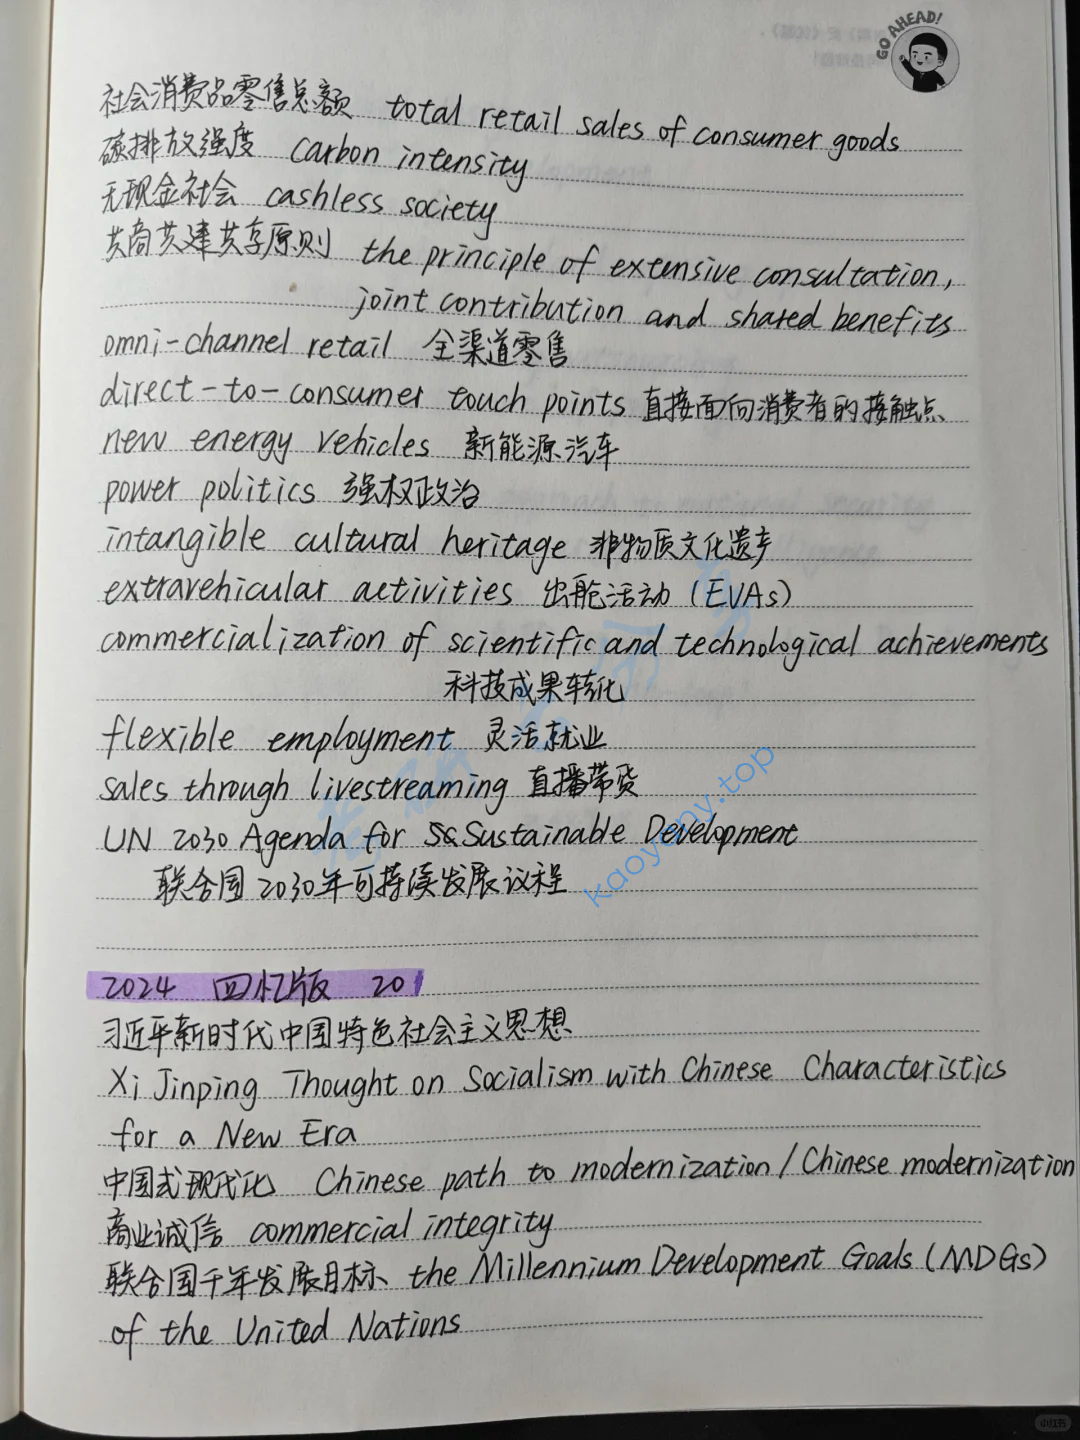 GO AHEAD!
社会消费品零售总额 total retail sales of consumer goods
碳排放强度 carbon intensity
无现金社会 cashless society
共商共建共享原则 the principle of extensive consultation,
joint contribution and shared benefits
omni-channel retail 全渠道零售
direct-to-consumer touch points 直接面向消费者的接触点
new energy vehicles 新能源汽车
power politics 强权政治
intangible cultural heritage 非物质文化遗产
extravehicular activities 出舱活动 (EVAs)
commercialization of scientific and technological achievements
科技成果转化
flexible employment 灵活就业
sales through livestreaming 直播带货
UN 2030 Agenda for Sustainable Development
联合国2030年可持续发展议程
kaoyany.top
2024 回忆版 20
习近平新时代中国特色社会主义思想
Xi Jinping Thought on Socialism with Chinese Characteristics
for a New Era
中国式现代化 Chinese path to modernization / Chinese modernization
商业诚信 commercial integrity
联合国千年发展目标 the Millennium Development Goals (MDGs)
of the United Nations
小红书